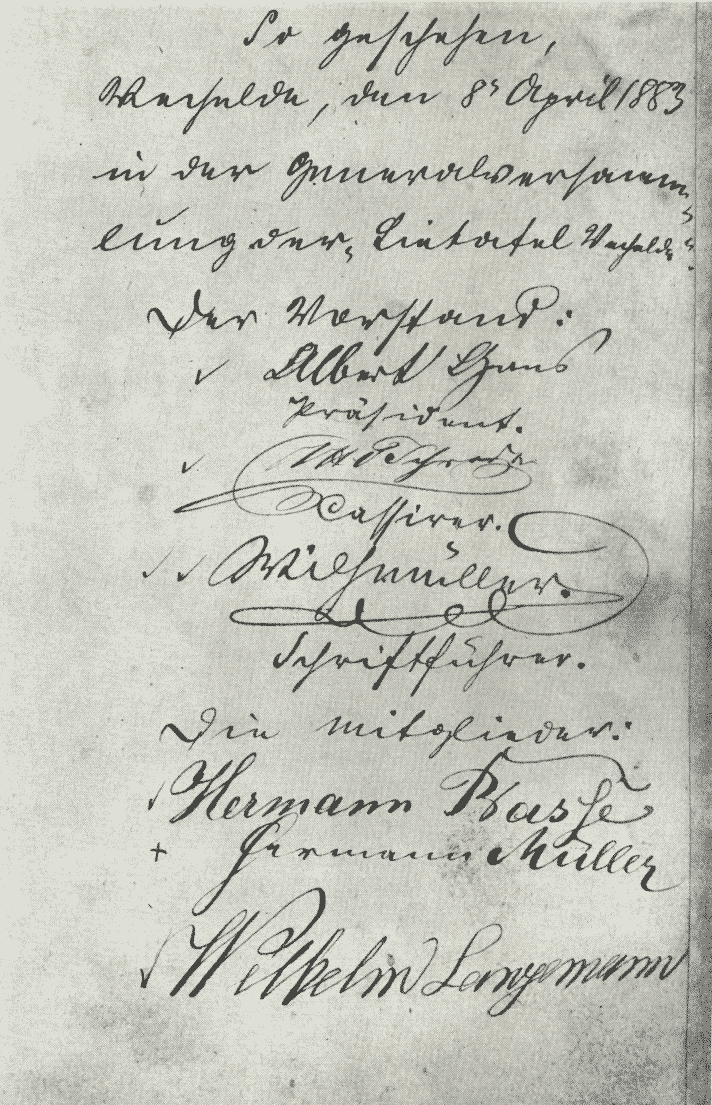 So geschehen,
Vechelde, den 8t April 1883
in der Generalversamm
lung der Lietafel Vechelde
Der Vorstand:
Albert Gans
Präsident.
Cassirer.
Müller.
Schriftführer.
Die Mitglieder:
Hermann Basse
Hermann Müller
Wilhelm Langemann